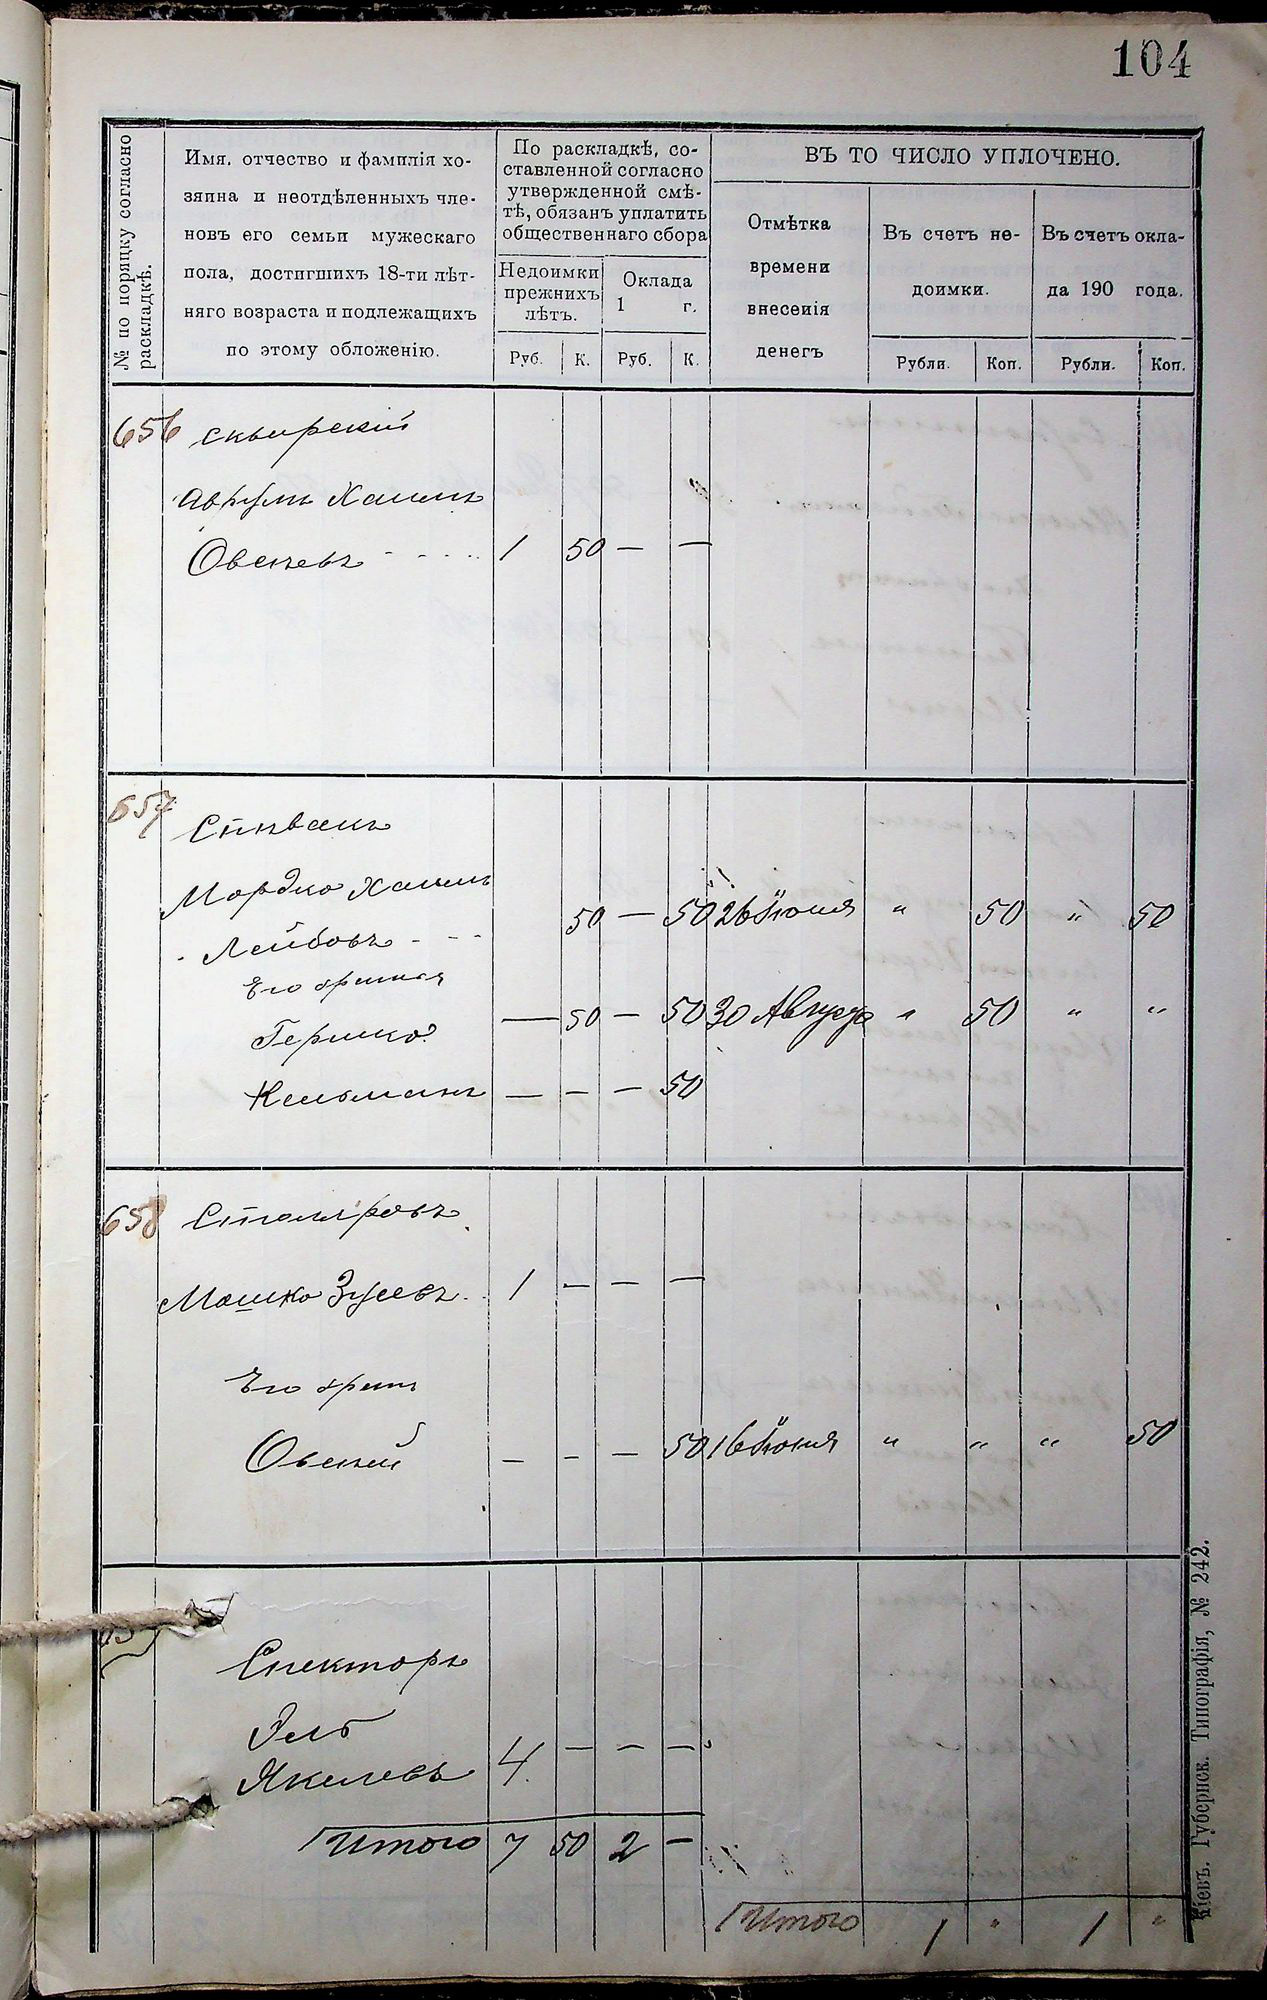 104
№ по порядку согласно раскладкѣ.
Имя, отчество и фамилія хо-
зяина и неотдѣленныхъ чле-
новъ его семьи мужескаго
пола, достигшихъ 18-ти лѣт-
няго возраста и подлежащихъ
по этому обложенію.
По раскладкѣ, со-
ставленной согласно
утвержденной смѣ-
тѣ, обязанъ уплатить
общественнаго сбора
Недоимки
прежнихъ
лѣтъ.
Оклада
1 г.
Руб. К. Руб. К.
ВЪ ТО ЧИСЛО УПЛОЧЕНО.
Отмѣтка
времени
внесенія
денегъ
Въ счетъ не-
доимки.
Въ счетъ окла-
да 190 года.
Рубли. Коп. Рубли. Коп.
656 Сквирскій
Хаимъ
Овсеевъ 1 50 — —
657 Спивакъ
Мордко Хаимъ
Лейбовъ 50 — 50 26 Іюня " 50 " 50
Его братья
Гершко — 50 — 50 30 Августа " 50 " "
Кельманъ — — — 50
658 Столяровъ
Мошко Зусевъ 1 — — —
Его братъ
Овсей — — — 50 16 Іюня " " " 50
Спекторъ
Якелевъ 4 — — —
Итого 7 50 2 —
Итого 1 " 1 "
Кіевъ. Губернск. Типографія, № 242.